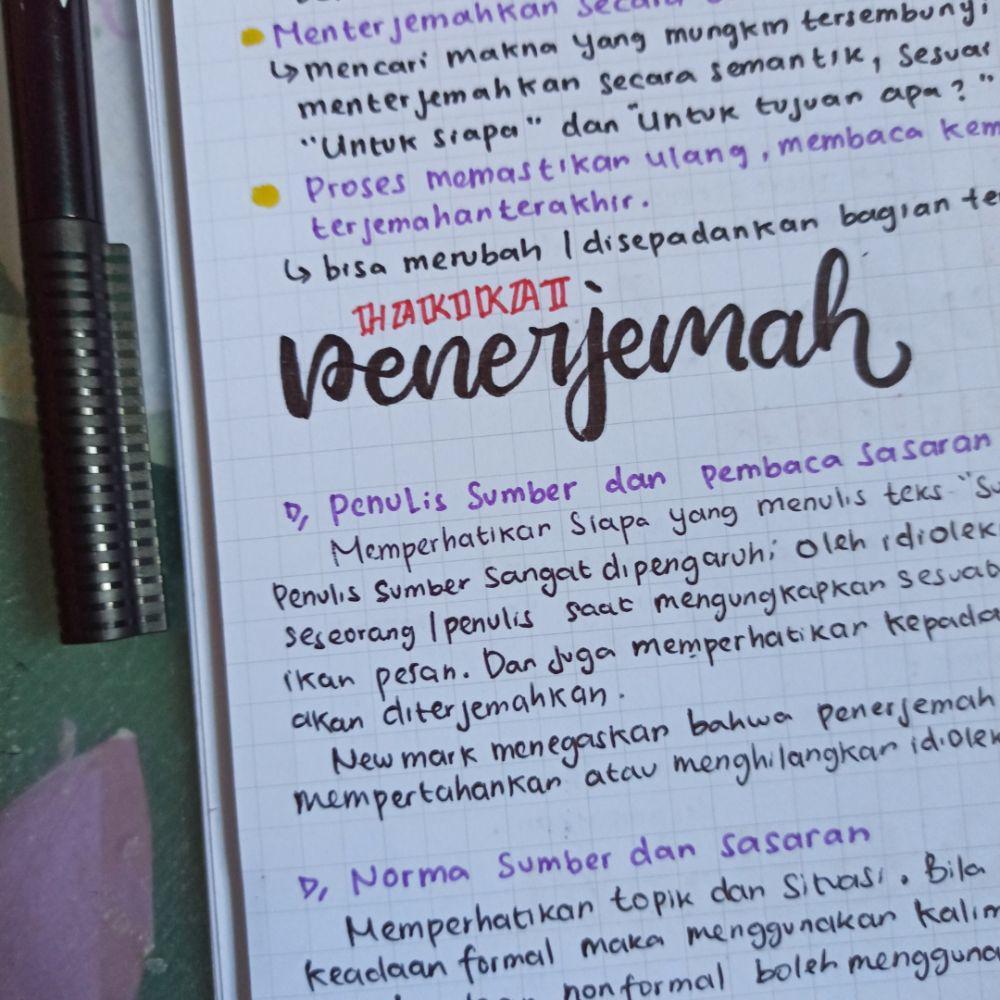 Menterjemahkan secara
↳ mencari makna yang mungkin tersembunyi
menterjemahkan secara semantik, sesuai
"Untuk siapa" dan "untuk tujuan apa?"
Proses memastikan ulang, membaca
terjemahan terakhir.
↳ bisa merubah / disepadankan bagian
HAKIKAT
penerjemah
D, Penulis Sumber dan pembaca sasaran
Memperhatikan Siapa yang menulis teks
Penulis sumber sangat dipengaruhi oleh idiolek
seseorang / penulis saat mengungkapkan
ikan pesan. Dan juga memperhatikan kepada
akan diterjemahkan.
Newmark menegaskan bahwa penerjemah
mempertahankan atau menghilangkan idiolek
D, Norma Sumber dan sasaran
Memperhatikan topik dan situasi. Bila
keadaan formal maka menggunakan
nonformal boleh